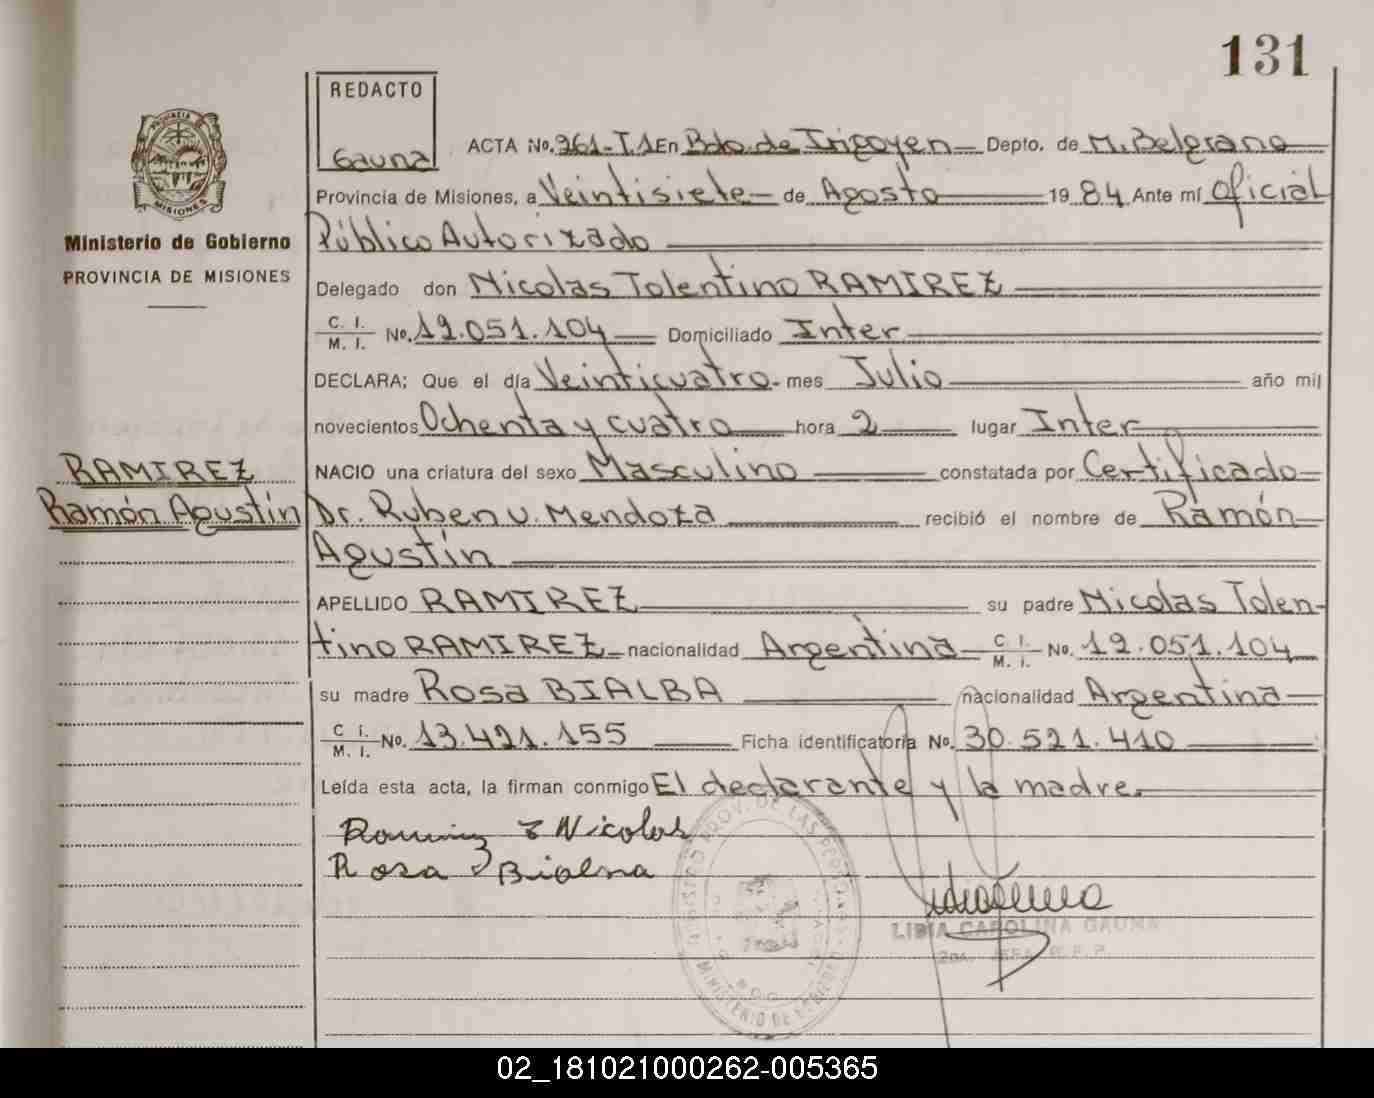 131
REDACTO
Gauna
PROVINCIA DE MISIONES
Ministerio de Gobierno
PROVINCIA DE MISIONES
ACTA No. 261-T1 En Bdo. de Irigoyen Depto. de M. Belgrano
Provincia de Misiones, a Veintisiete de Agosto 1984 Ante mí Oficial
Público Autorizado
Delegado don Nicolas Tolentino RAMIREZ
C. I. M. I. No. 12.051.104 Domiciliado Inter
DECLARA: Que el día Veinticuatro mes Julio año mil
novecientos Ochenta y cuatro hora 2 lugar Inter
RAMIREZ
Ramón Agustín
NACIO una criatura del sexo Masculino constatada por Certificado
Dr. Ruben U. Mendoza recibió el nombre de Ramón
Agustín
APELLIDO RAMIREZ su padre Nicolas Tolen-
tino RAMIREZ nacionalidad Argentina C. I. M. I. No. 12.051.104
su madre Rosa BIALBA nacionalidad Argentina
C. I. M. I. No. 13.421.155 Ficha identificatoria No. 30.521.410
Leída esta acta, la firman conmigo El declarante y la madre.
Ramirez T Nicolas
Rosa Bialba
LIDIA CAROLINA GAUNA
02_181021000262-005365